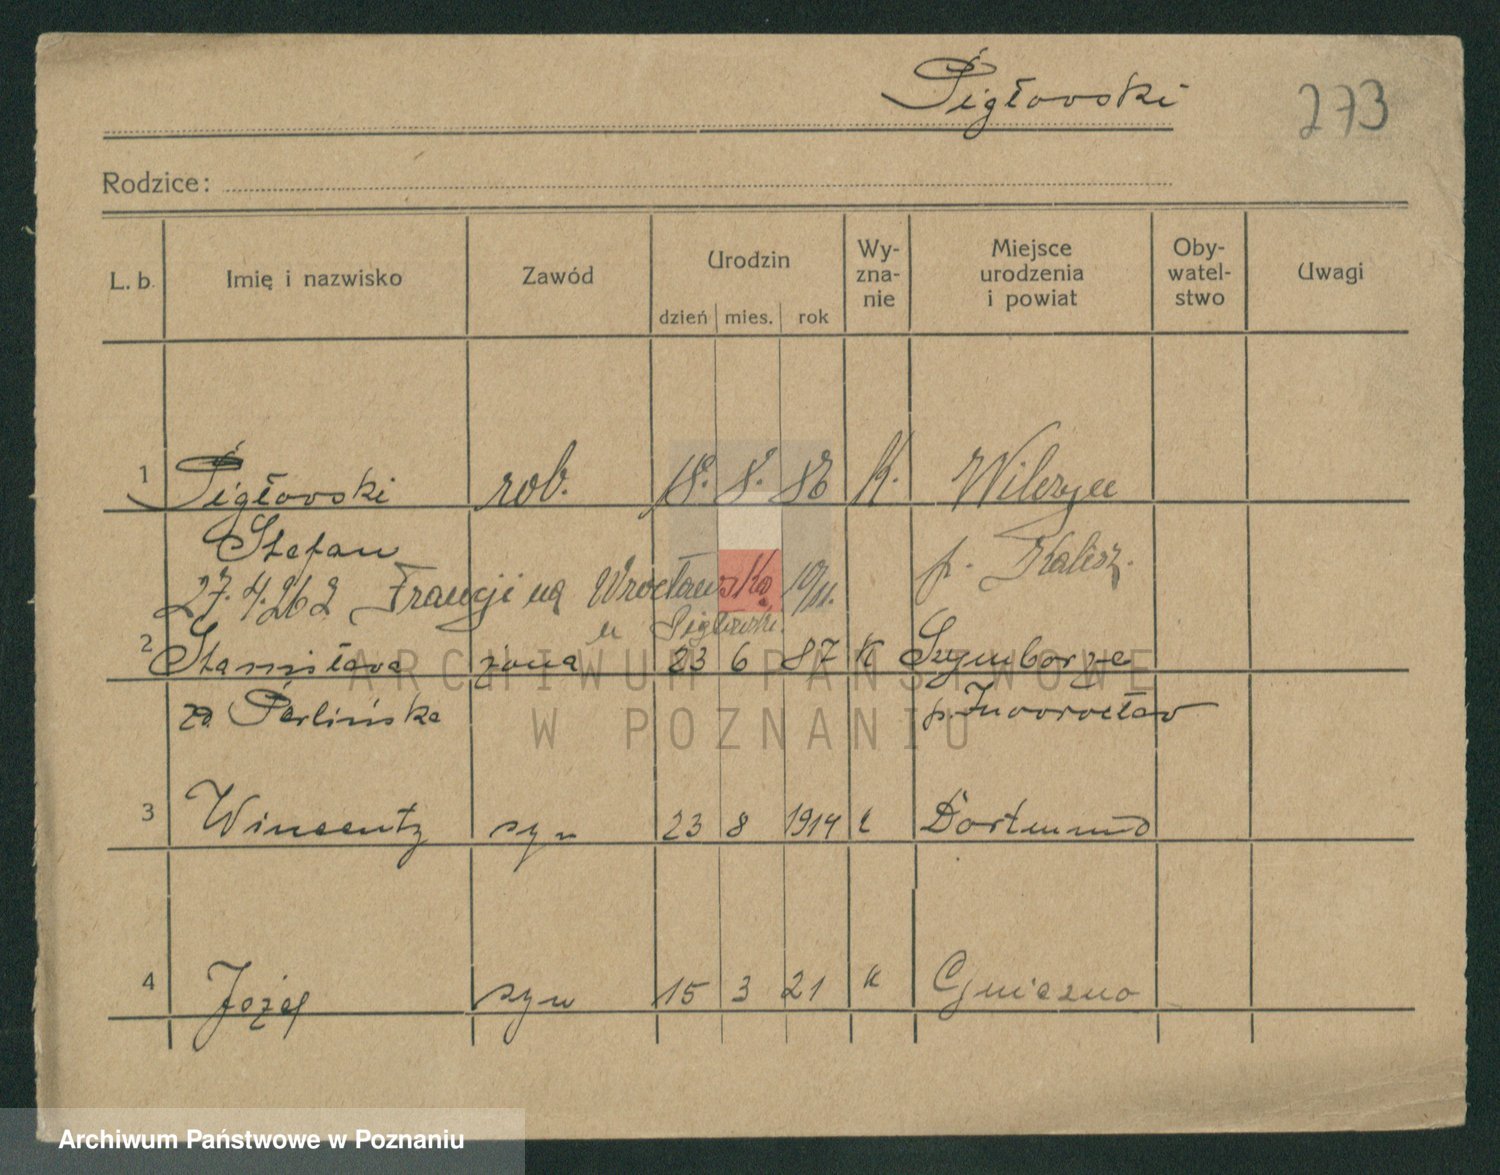 Pigłowski
273
Rodzice:
L. b.
Imię i nazwisko
Zawód
Urodzin
dzień mies. rok
Wy-
zna-
nie
Miejsce
urodzenia
i powiat
Oby-
watel-
stwo
Uwagi
1 Pigłowski rob. 18. 8. 86 K.
Stefan p. Kalisz.
27.4.26 z Francji na Wrocławska 10/11.
u Pigłowski.
2 Stanisława żona 23 6 87 K Szymborze
za Perlińska p. Inowrocław
3 Wincenty syn 23 8 1914 k Dortmund
4 Józef syn 15 3 21 k Gniezno
ARCHIWUM PAŃSTWOWE
W POZNANIU
Archiwum Państwowe w Poznaniu